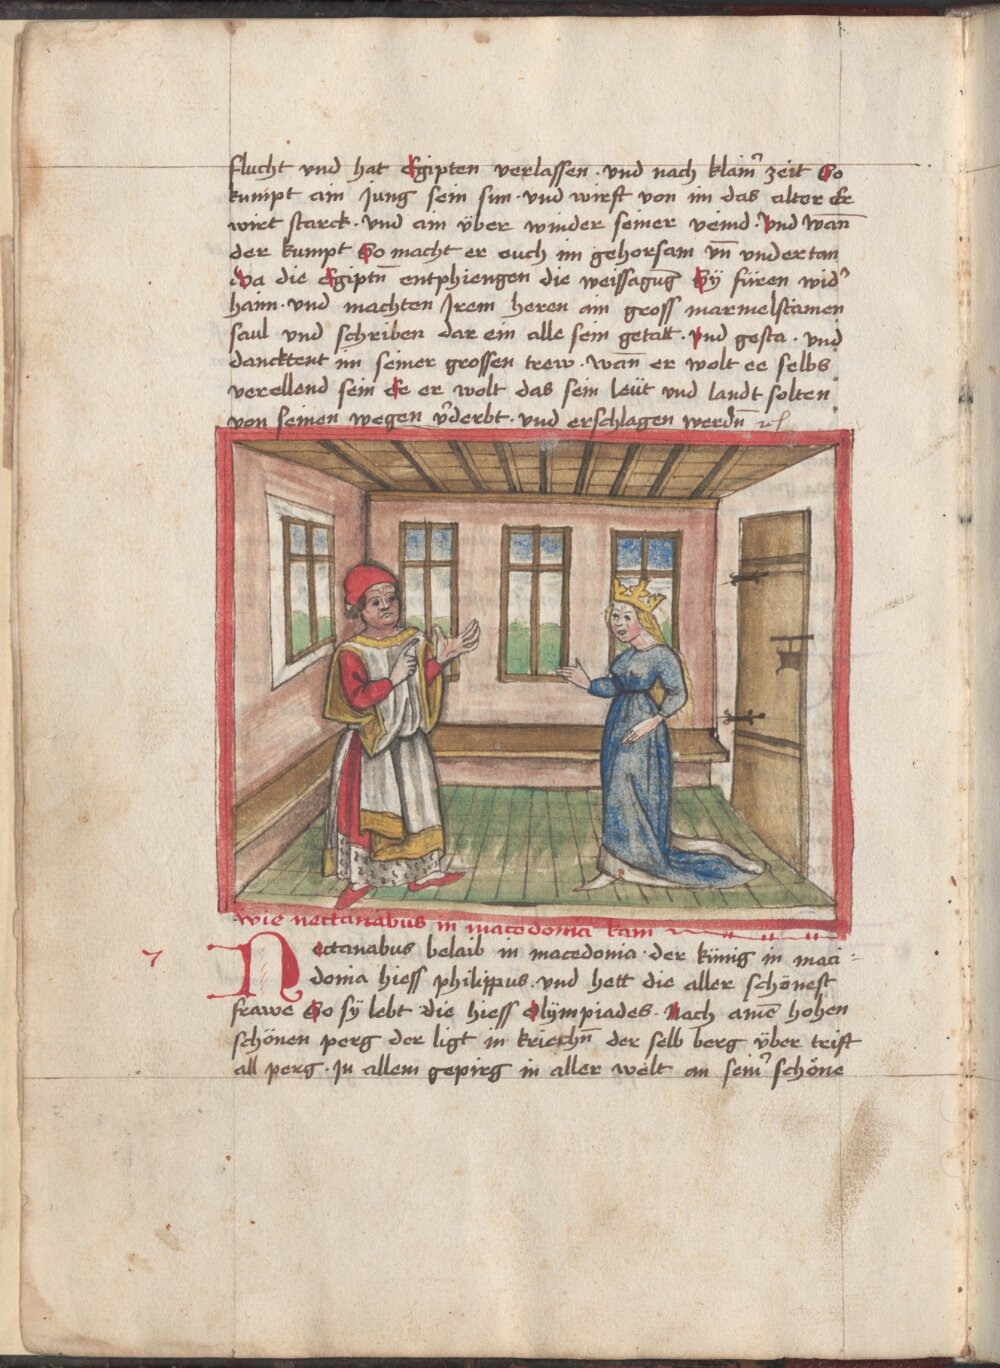 flucht vnd hat Egipten verlassen · vnd nach klaim̾ zeit So
kumpt ain Jung sein sun · vnd wirft von im das alter Er
wirt starck · vnd ain über winder seiner veind · vnd wan̄
der kumpt So macht er euch im gehorsam vn̄ vndertan
da die Egiptn̄ entphiengen die weissaguḡ Sÿ füren wid̾
haim · vnd machten Jrem heren ain gross marmelstainen
saul vnd schriben dar ein alle sein getatt · vnd gesta · vnd
dancktent im seiner grossen trew · wan̄ er wolt ee selbs
verellend sein Ee er wolt das sein leüt vnd landt solten
von seinen wegen v̄derbt · vnd erschlagen werdn̄
wie nectanabus in macedonia kam
7
Nectanabus belaib in macedonia · der künig in maci
donia hiess philippus · vnd hett die aller schönest
frawe So sÿ lebt die hiess Olÿmpiades · Nach aine hohen
schönen perg der ligt in kriechn̄ der selb berg über trift
all perg · Jn allem gepirg in aller welt an sein̾ schöne